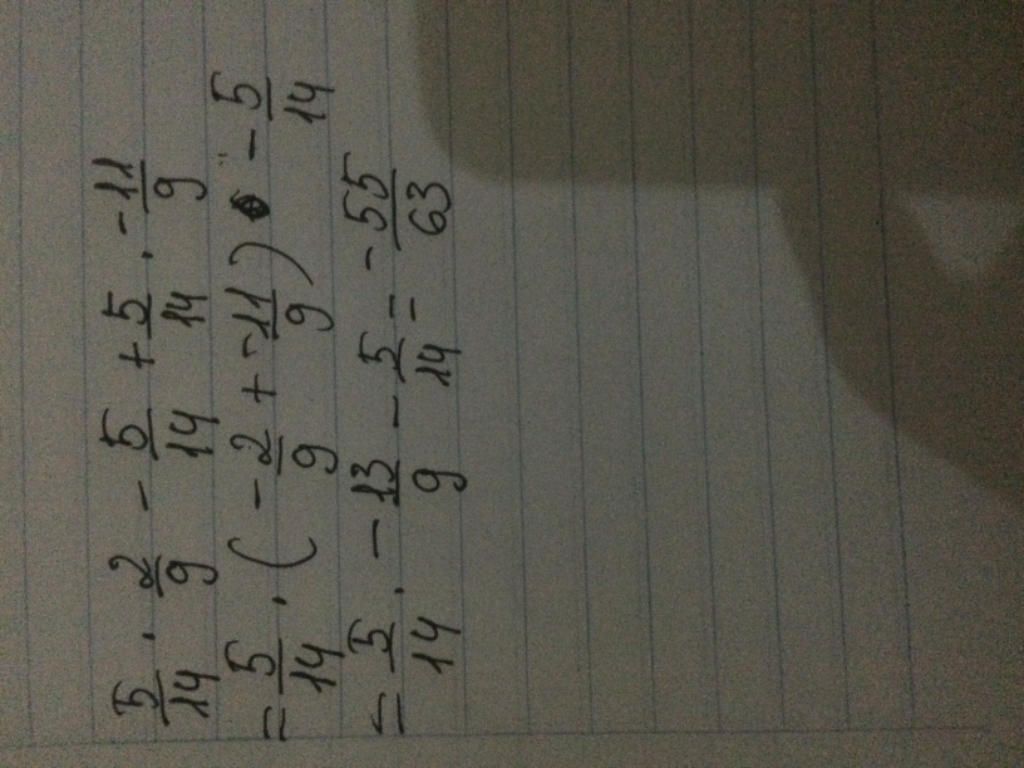 5/14 · 2/9 - 5/14 + 5/14 · -11/9
= 5/14 · ( -2/9 + -11/9 ) - 5/14
= 5/14 · -13/9 - 5/14 = -55/63